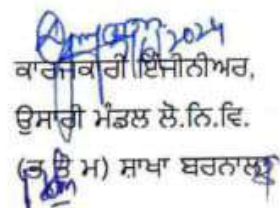 2024
ਕਾਰਜਕਾਰੀ ਇੰਜੀਨੀਅਰ,
ਉਸਾਰੀ ਮੰਡਲ ਲੋ.ਨਿ.ਵਿ.
(ਭ ਤੇ ਮ) ਸ਼ਾਖਾ ਬਰਨਾਲਾ